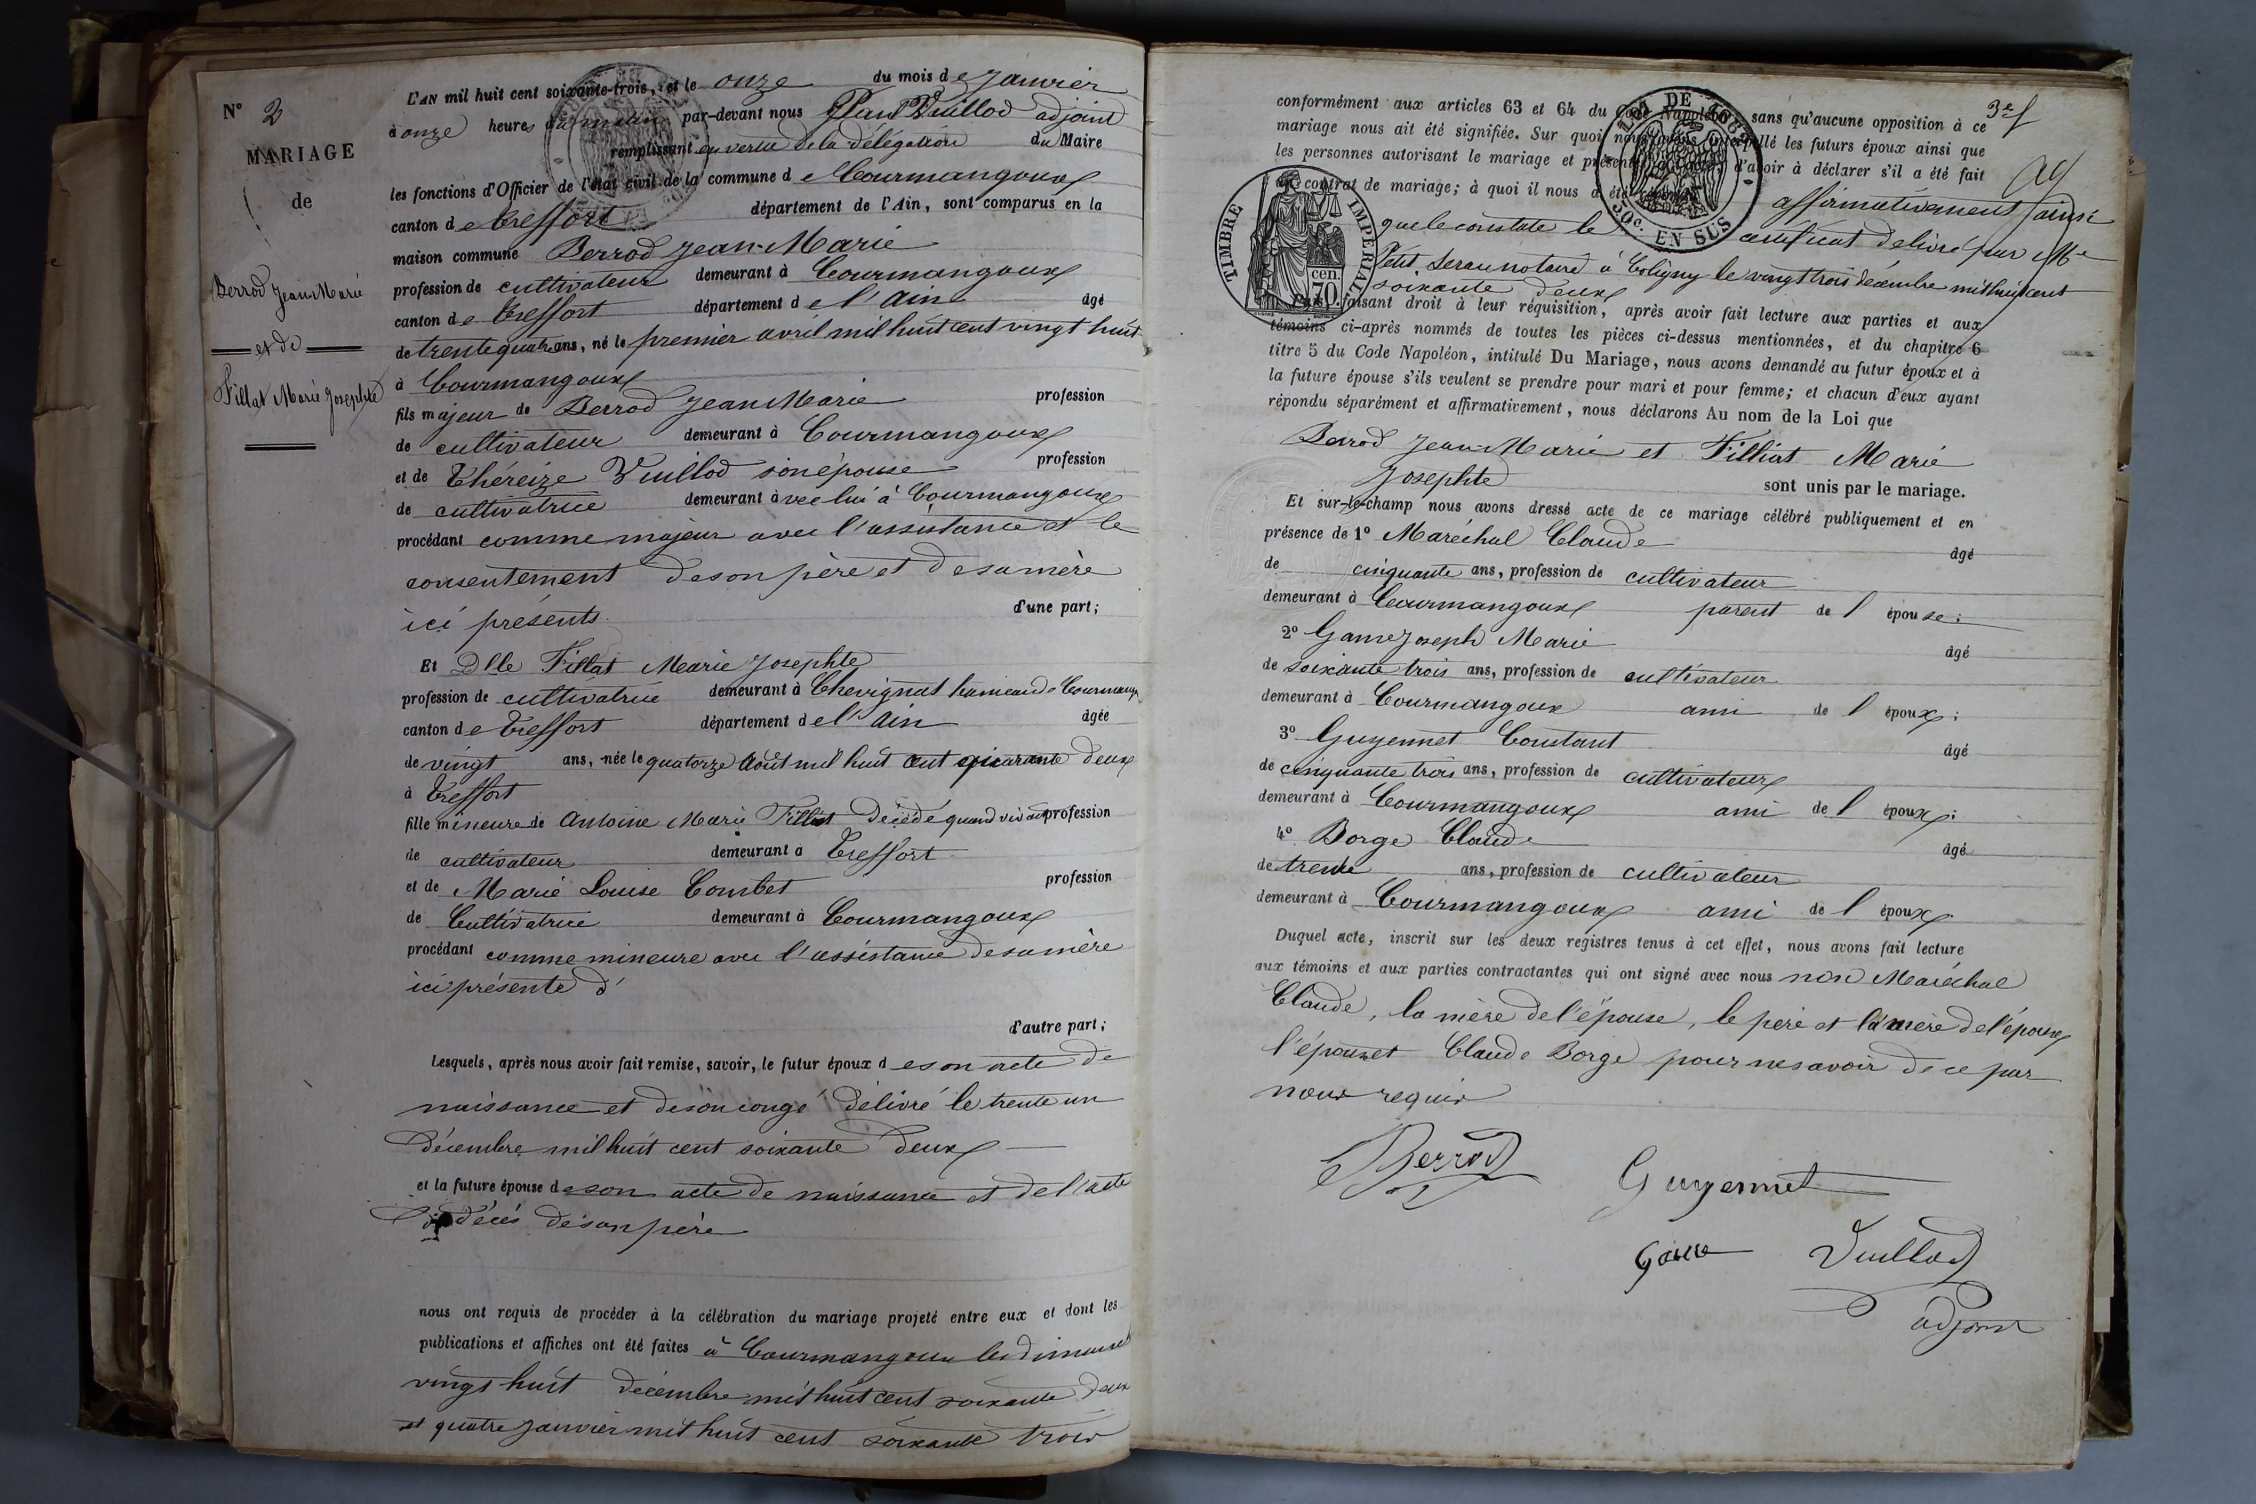 N° 2
MARIAGE
de
Berrod Jean Marie
et de
Fillat Marie Josephte
L'AN mil huit cent soixante-trois, et le onze du mois de Janvier
à onze heures du matin par-devant nous Vuillod adjoint
remplissant en vertu de la délégation du Maire
les fonctions d'Officier de l'état civil de la commune de Courmangoux
canton de Treffort département de l'Ain, sont comparus en la
maison commune Berrod Jean-Marie
profession de cultivateur demeurant à Courmangoux
canton de Treffort département de l'Ain âgé
de trente quatre ans, né le premier avril mil huit cent vingt huit
à Courmangoux
fils majeur de Berrod Jean Marie profession
de cultivateur demeurant à Courmangoux
et de Théreize Vuillod son épouse profession
de cultivatrice demeurant avec lui à Courmangoux
procédant comme majeur avec l'assistance et le
consentement de son père et de sa mère
ici présents d'une part;
Et Dlle Fillat Marie Josephte
profession de cultivatrice demeurant à Chevignat hameau de Courmang
canton de Treffort département de l'Ain âgée
de vingt ans, née le quatorze Août mil huit cent quarante deux
à Treffort
fille mineure de Antoine Marie Filliat décédé quand vivait profession
de cultivateur demeurant a Treffort
et de Marie Louise Combet profession
de Cultivatrice demeurant à Courmangoux
procédant comme mineure avec l'assistance de sa mère
ici présente d'
d'autre part;
Lesquels, après nous avoir fait remise, savoir, le futur époux de son acte de
naissance et de son congé délivré le trente un
décembre mil huit cent soixante deux
et la future épouse de son acte de naissance et de l'acte
de décés de son père
nous ont requis de procéder à la célébration du mariage projeté entre eux et dont les
publications et affiches ont été faites à Courmangoux les dimanches
vingt huit décembre mil huit cent soixante deux
et quatre janvier mil huit cent soixante trois
conformément aux articles 63 et 64 du Code Napoléon, sans qu'aucune opposition à ce
mariage nous ait été signifiée. Sur quoi nous avons interpellé les futurs époux ainsi que
les personnes autorisant le mariage et présentes d'avoir à déclarer s'il a été fait
un contrat de mariage; à quoi il nous a été répondu affirmativement ainsi
que le constate le certificat délivré par Me
Petit, notaire à Coligny le vingt trois décembre mil huit cent
soixante deux
Puis, faisant droit à leur réquisition, après avoir fait lecture aux parties et aux
témoins ci-après nommés de toutes les pièces ci-dessus mentionnées, et du chapitre 6
titre 5 du Code Napoléon, intitulé Du Mariage, nous avons demandé au futur époux et à
la future épouse s'ils veulent se prendre pour mari et pour femme; et chacun d'eux ayant
répondu séparément et affirmativement, nous déclarons Au nom de la Loi que
Berrod Jean-Marie et Filliat Marie
Josephte sont unis par le mariage.
Et sur-le-champ nous avons dressé acte de ce mariage célébré publiquement et en
présence de 1° Maréchal Claude âgé
de cinquante ans, profession de cultivateur
demeurant à Courmangoux parent de l'épouse;
2° Game Joseph Marie âgé
de soixante trois ans, profession de cultivateur
demeurant à Courmangoux ami de l'époux;
3° Guyennet Constant âgé
de cinquante trois ans, profession de cultivateur
demeurant à Courmangoux ami de l'époux;
4° Borge Claude âgé
de trente ans, profession de cultivateur
demeurant à Courmangoux ami de l'époux
Duquel acte, inscrit sur les deux registres tenus à cet effet, nous avons fait lecture
aux témoins et aux parties contractantes qui ont signé avec nous non Maréchal
Claude, la mère de l'épouse, le père et la mère de l'époux
l'épouse et Claude Borge pour ne savoir de ce par
nous requis
Berrod
Guyennet
Game
Vuillod
adjoint
3e f
TIMBRE IMPERIAL
70 cen.
LOI DE 1862
50c. EN SUS